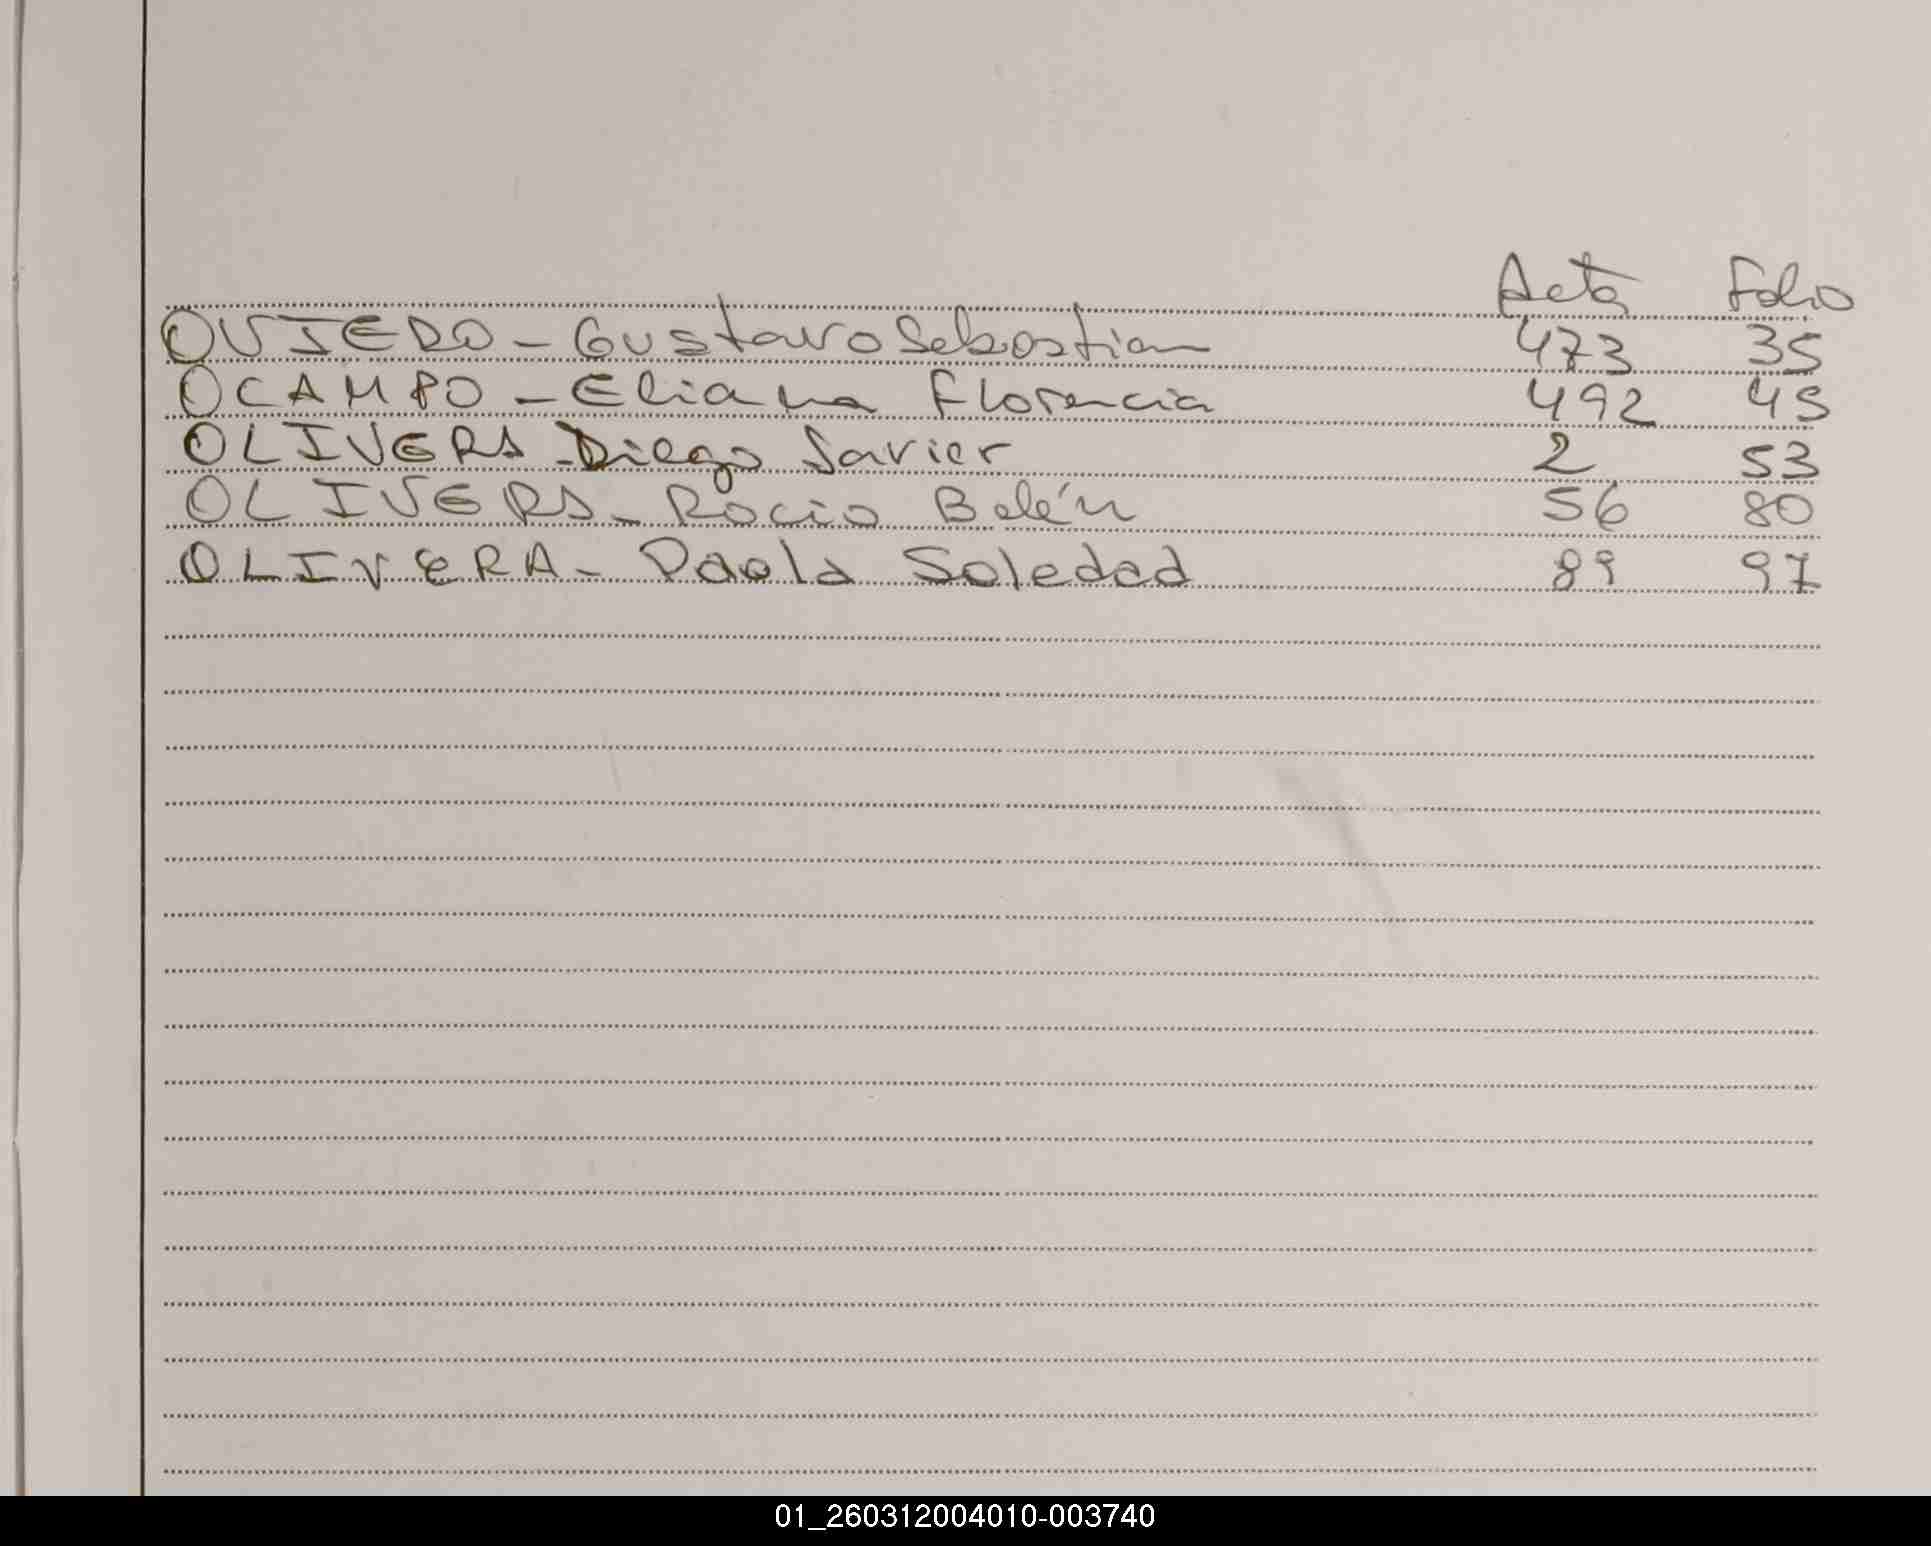 Acta Folio
OVIEDO - Gustavo Sebastian 473 35
OCAMPO - Eliana Florencia 492 45
OLIVERA - Diego Javier 2 53
OLIVERA - Rocio Belén 56 80
OLIVERA - Paola Soledad 89 97
01_260312004010-003740